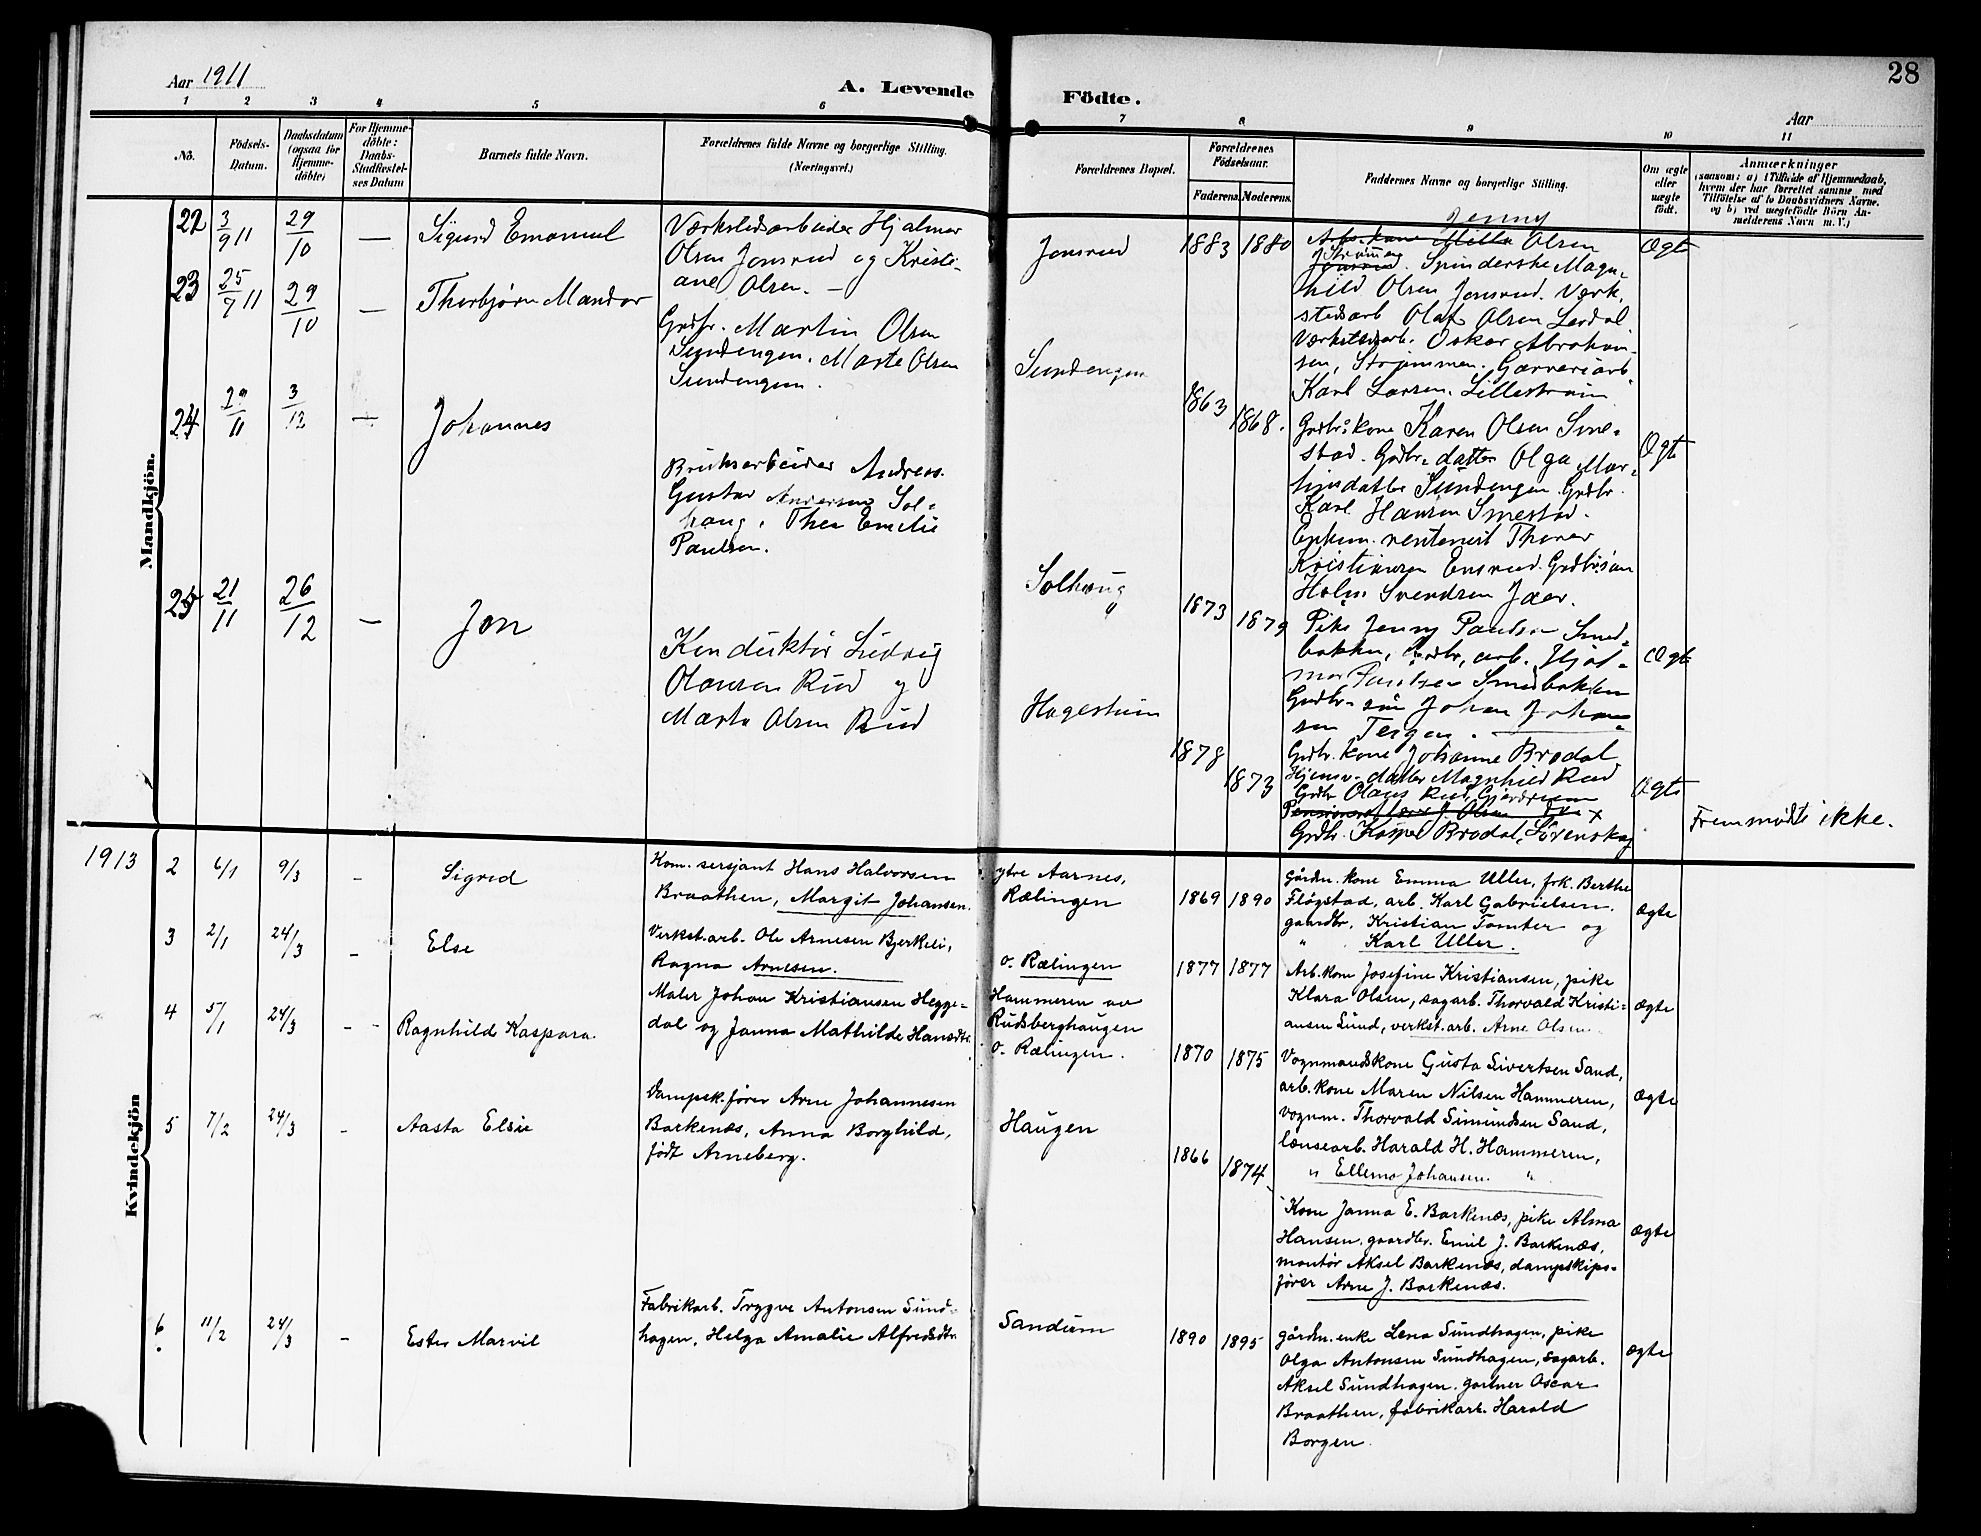 28
Aar 1911
A. Levende Födte.
Aar
1 2 3 4 5 6 7 8 9 10 11
No.
Födsels-Datum.
Daabsdatum (ogsaa for Hjemme-döbte)
For Hjemme-döbte: Daabs-Stadfæstel-ses Datum
Barnets fulde Navn.
Forældrenes fulde Navne og borgerlige Stilling.
(Næringsvei.)
Forældrenes Bopæl.
Forældrenes Födselsaar.
Faderens. Moderens.
Faddernes Navne og borgerlige Stilling.
Om ægte eller uægte födt.
Anmærkninger
(saasom: a) i Tilfælde af Hjemmedaab,
hvem der har forrettet samme med
Tilföielse af to Daabsvidners Navne.
og b) ved uægtefödte Börn An-
melderens Navn m. V.)
Mandkjön.
22 3/9 11 29/10 — Sigurd Emanuel
Værkstedsarbeider Hjalmar
Olsen Jonsrud og Kristi-
ane Olsen. —
Jonsrud
1883 1880
Jenny
Arb. kone Milla Olsen
Strömmen
Jonsrud. Spinderske Magn-
hild Olsen Jonsrud. Værk-
stedsarb Olaf Olsen Lerdal.
Værkstedsarb. Oskar Abraham-
sen, Strømmen. Garveriarb
Karl Larsen. Lillestrøm
Ægte
23 25/7 11 29/10 — Thorbjørn Mandor
Grdbr. Martin Olsen
Sundengen. Marte Olsen
Sundengen.
Sundengen
1863 1868.
Grdbr. kone Karen Olsen Sme-
stad. Grdbr. datter Olga Mar-
tinsdatter Sundengen. Grdbr.
Karl Hansen Smestad.
Enkem. rentenist Thorer
Kristiansen Ensrud. Grdbr. søn
Holm Svendsen Jaer.
Ægte
24 29/11 3/12 — Johannes
Bruksarbeider Andreas
Gustav Andersen Sol-
haug. Thea Emelie
Paulsen.
Solhaug
"
1873 1879
Pike Jenny Paulsen Smed-
bakken, Grdbr. arb. Hjal-
mar Paulsen Smedbakken
Grdbr. søn Johan Johan-
sen Tergen.
Ægte
25 21/11 26/12 — Jon
Konduktör Ludvig
Olausen Rud og
Marta Olsen Rud
Hagestuin
1878 1873
Grdbr. kone Johanne Brodal
Hjemv. datter Magnhild Rud
Grdbr Olaus Rud, Gjerdrum
Grdbr. Kasper Brodal, Lörenskog
Ægte
Fremmødte ikke.
Kvindekjön
1913 2 6/1 9/3 – Sigrid
Kom. sersjant Hans Halvorsen
Braathen, Margit Johansen.
ytre Aarnes,
Rælingen
1869 1890
gårdm. kone Emma Uller, frk. Berthe
Fløgstad, arb. Karl Gabrielsen.
gaardbr. Kristian Tomter og
" Karl Uller.
ægte
3 2/1 24/3 – Else
Verkst. arb. Ole Arnesen Bjerkeli,
Ragna Arnesen.
o. Rælingen
1877 1877
Arb. kone Josefine Kristiansen, pike
Klara Olsen, sagarb. Thorvald Kristi-
ansen Lund, verkst. arb. Arne Olsen.
ægte
4 5/1 24/3 – – Ragnhild Kaspara.
Maler Johan Kristiansen Hegge-
dal og Janna Mathilde Hansdtr.
Hammeren av
Rudsberghaugen
o. Rælingen.
1870 1875
Vognmandskone Gusta Sivertsen Sand,
arb. kone Maren Nilsen Hammeren,
vognm. Thorvald Simundsen Sand,
lænsearb. Harald H. Hammeren,
" Ellemo Johansen. "
ægte
5 7/2 24/3 – Aasta Elsie
Dampsk. fører Arne Johannesen
Barkenæs, Anna Borghild,
født Arneberg.
Haugen
1866 1874
Kone Janna E. Barkenæs, pike Alma
Hansen, gaardbr. Emil J. Barkenæs,
montør Aksel Barkenæs, dampskips-
fører Arne J. Barkenæs.
ægte
6 11/2 24/3 – Ester Marvil
Fabrikarb. Trygve Antonsen Sund-
hagen, Helga Amalie Alfredsdtr.
Sandum
1890 1895
gårdm. enke Lena Sundhagen, pike
Olga Antonsen Sundhagen, sagarb.
Aksel Sundhagen, gartner Oscar
Braathen, fabrikarb. Harald
Borgen.
ægte